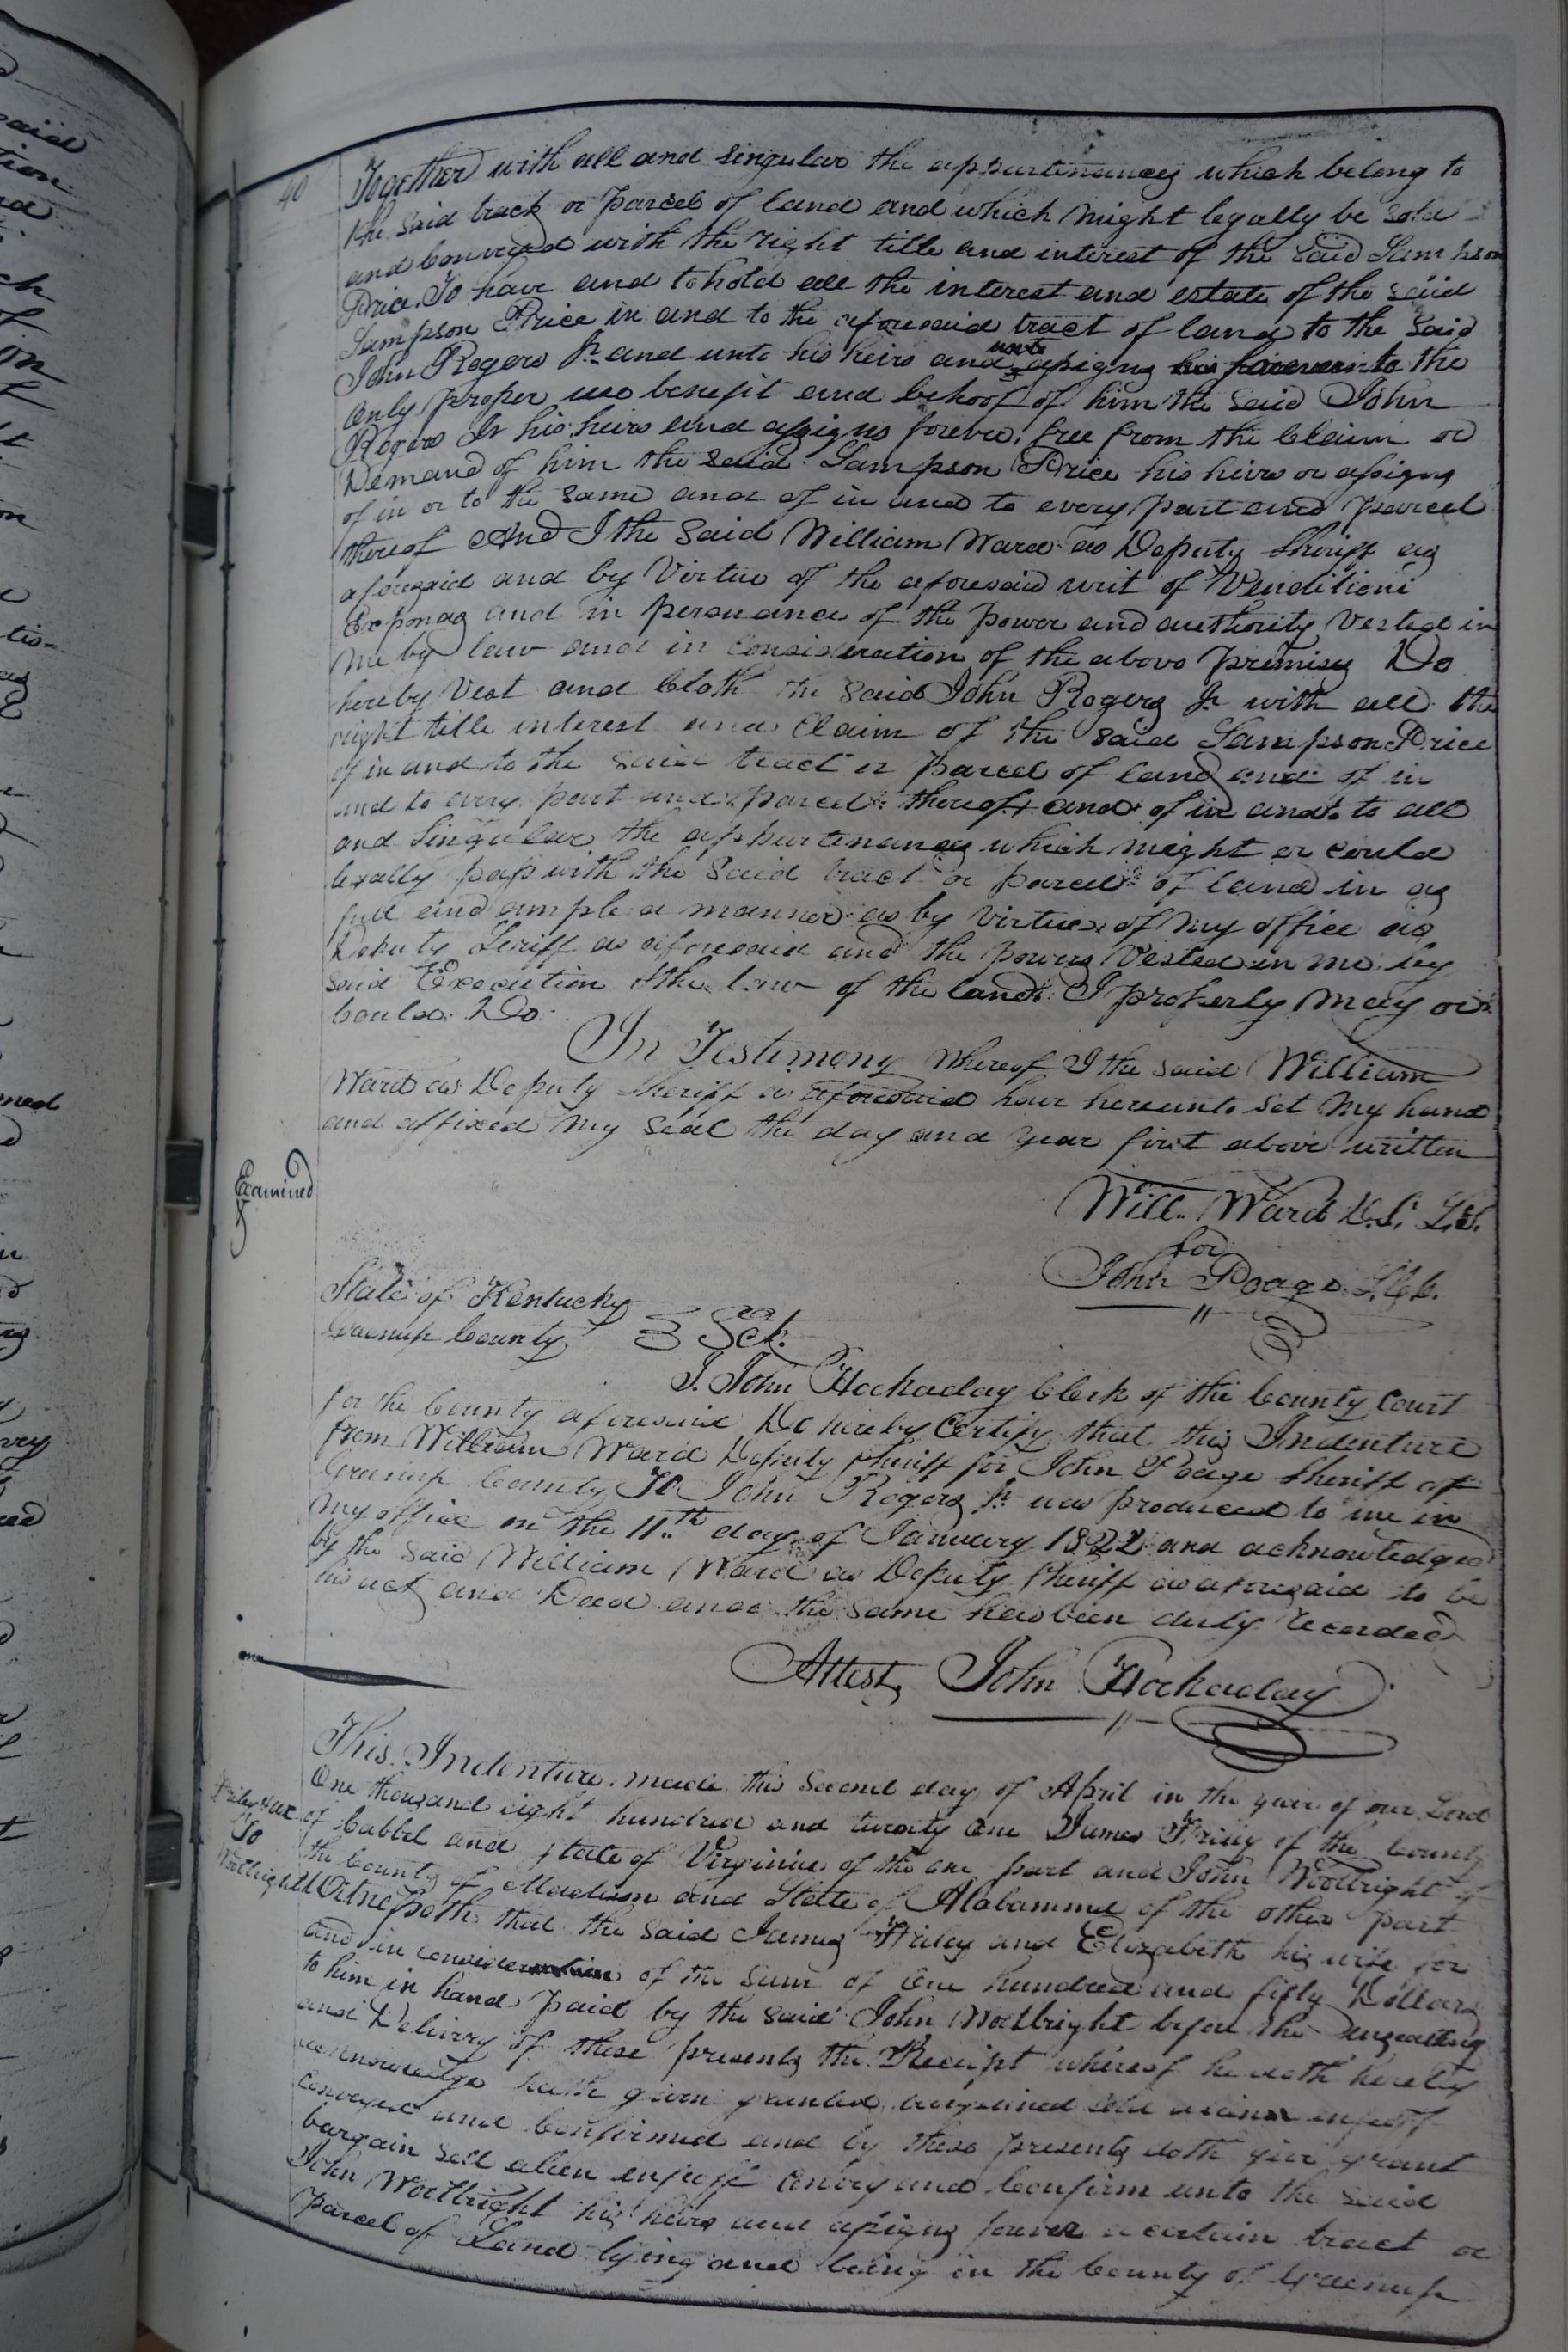 40
Together with all and singular the appurtenances which belong to
the said track or parcel of land and which might legally be sold
and conveyed with the right title and interest of the said Sampson
Price. To have and to hold all the interest and estate of the said
Sampson Price in and to the aforesaid tract of land to the said
John Rogers Jr. and unto his heirs and assigns to the
only proper use benefit and behoof of him the said John
Rogers Jr his heirs and assigns forever, free from the Claim or
Demand of him the said Sampson Price his heirs or assigns
of in or to the same and of in and to every part and parcel
thereof And I the said William Ward as Deputy Sheriff as
aforesaid and by Virtue of the aforesaid writ of Venditioni
Exponas and in persuance of the power and authority Vested in
me by law and in consideration of the above premises Do
hereby Vest and Cloth the said John Rogers Jr with all the
right title interest and Claim of the said Sampson Price
of in and to the said tract or parcel of land and of in
and to every part and parcel thereof and of in and to all
and Singular the appurtenances which might or could
legally pass with the said tract or parcel of land in as
full and ample a manner as by virtue of my office as
Deputy Seriff as aforesaid and the powers Vested in me by
said Execution & the law of the land I properly may or
could Do
In Testimony whereof I the said William
Ward as Deputy Sheriff as aforesaid have hereunto set my hand
and affixed my seal the day and year first above written
Examined
Will. Ward D.S. L.S.
for
John Poage S.G.C.
State of Kentucky
Greenup County Sct.
I. John Hockaday Clerk of the County Court
for the County aforesaid Do hereby Certify that this Indenture
from William Ward Deputy Sheriff for John Poage Sheriff of
Greenup County To John Rogers Jr. was produced to me in
my office on the 11th day of January 1822 and acknowledged
by the said William Ward as Deputy Sheriff as aforesaid to be
his act and Deed and the same has been duly recorded
Attest, John Hockaday
This Indenture made this second day of April in the year of our Lord
One thousand eight hundred and twenty one James Friley of the County
Friley &ux
of Cabbel and state of Virginia of the one part and John Wortbright of
To
the County of Madison and State of Alabamma of the other part
Wortbright
Witnesseth that the said James Friley and Elizabeth his wife for
and in consideration of the sum of One hundred and fifty Dollars
to him in hand paid by the said John Wortbright before the ensealing
and Delivery of these presents the Receipt whereof he doth hereby
acknowledge hath given granted bargained sold enfeoff
conveyed and Confirmed and by these presents doth give grant
bargain sell alien enfeoff convey and Confirm unto the said
John Wortbright his heirs and assigns forever a certain tract or
parcel of Land lying and being in the County of Greenup